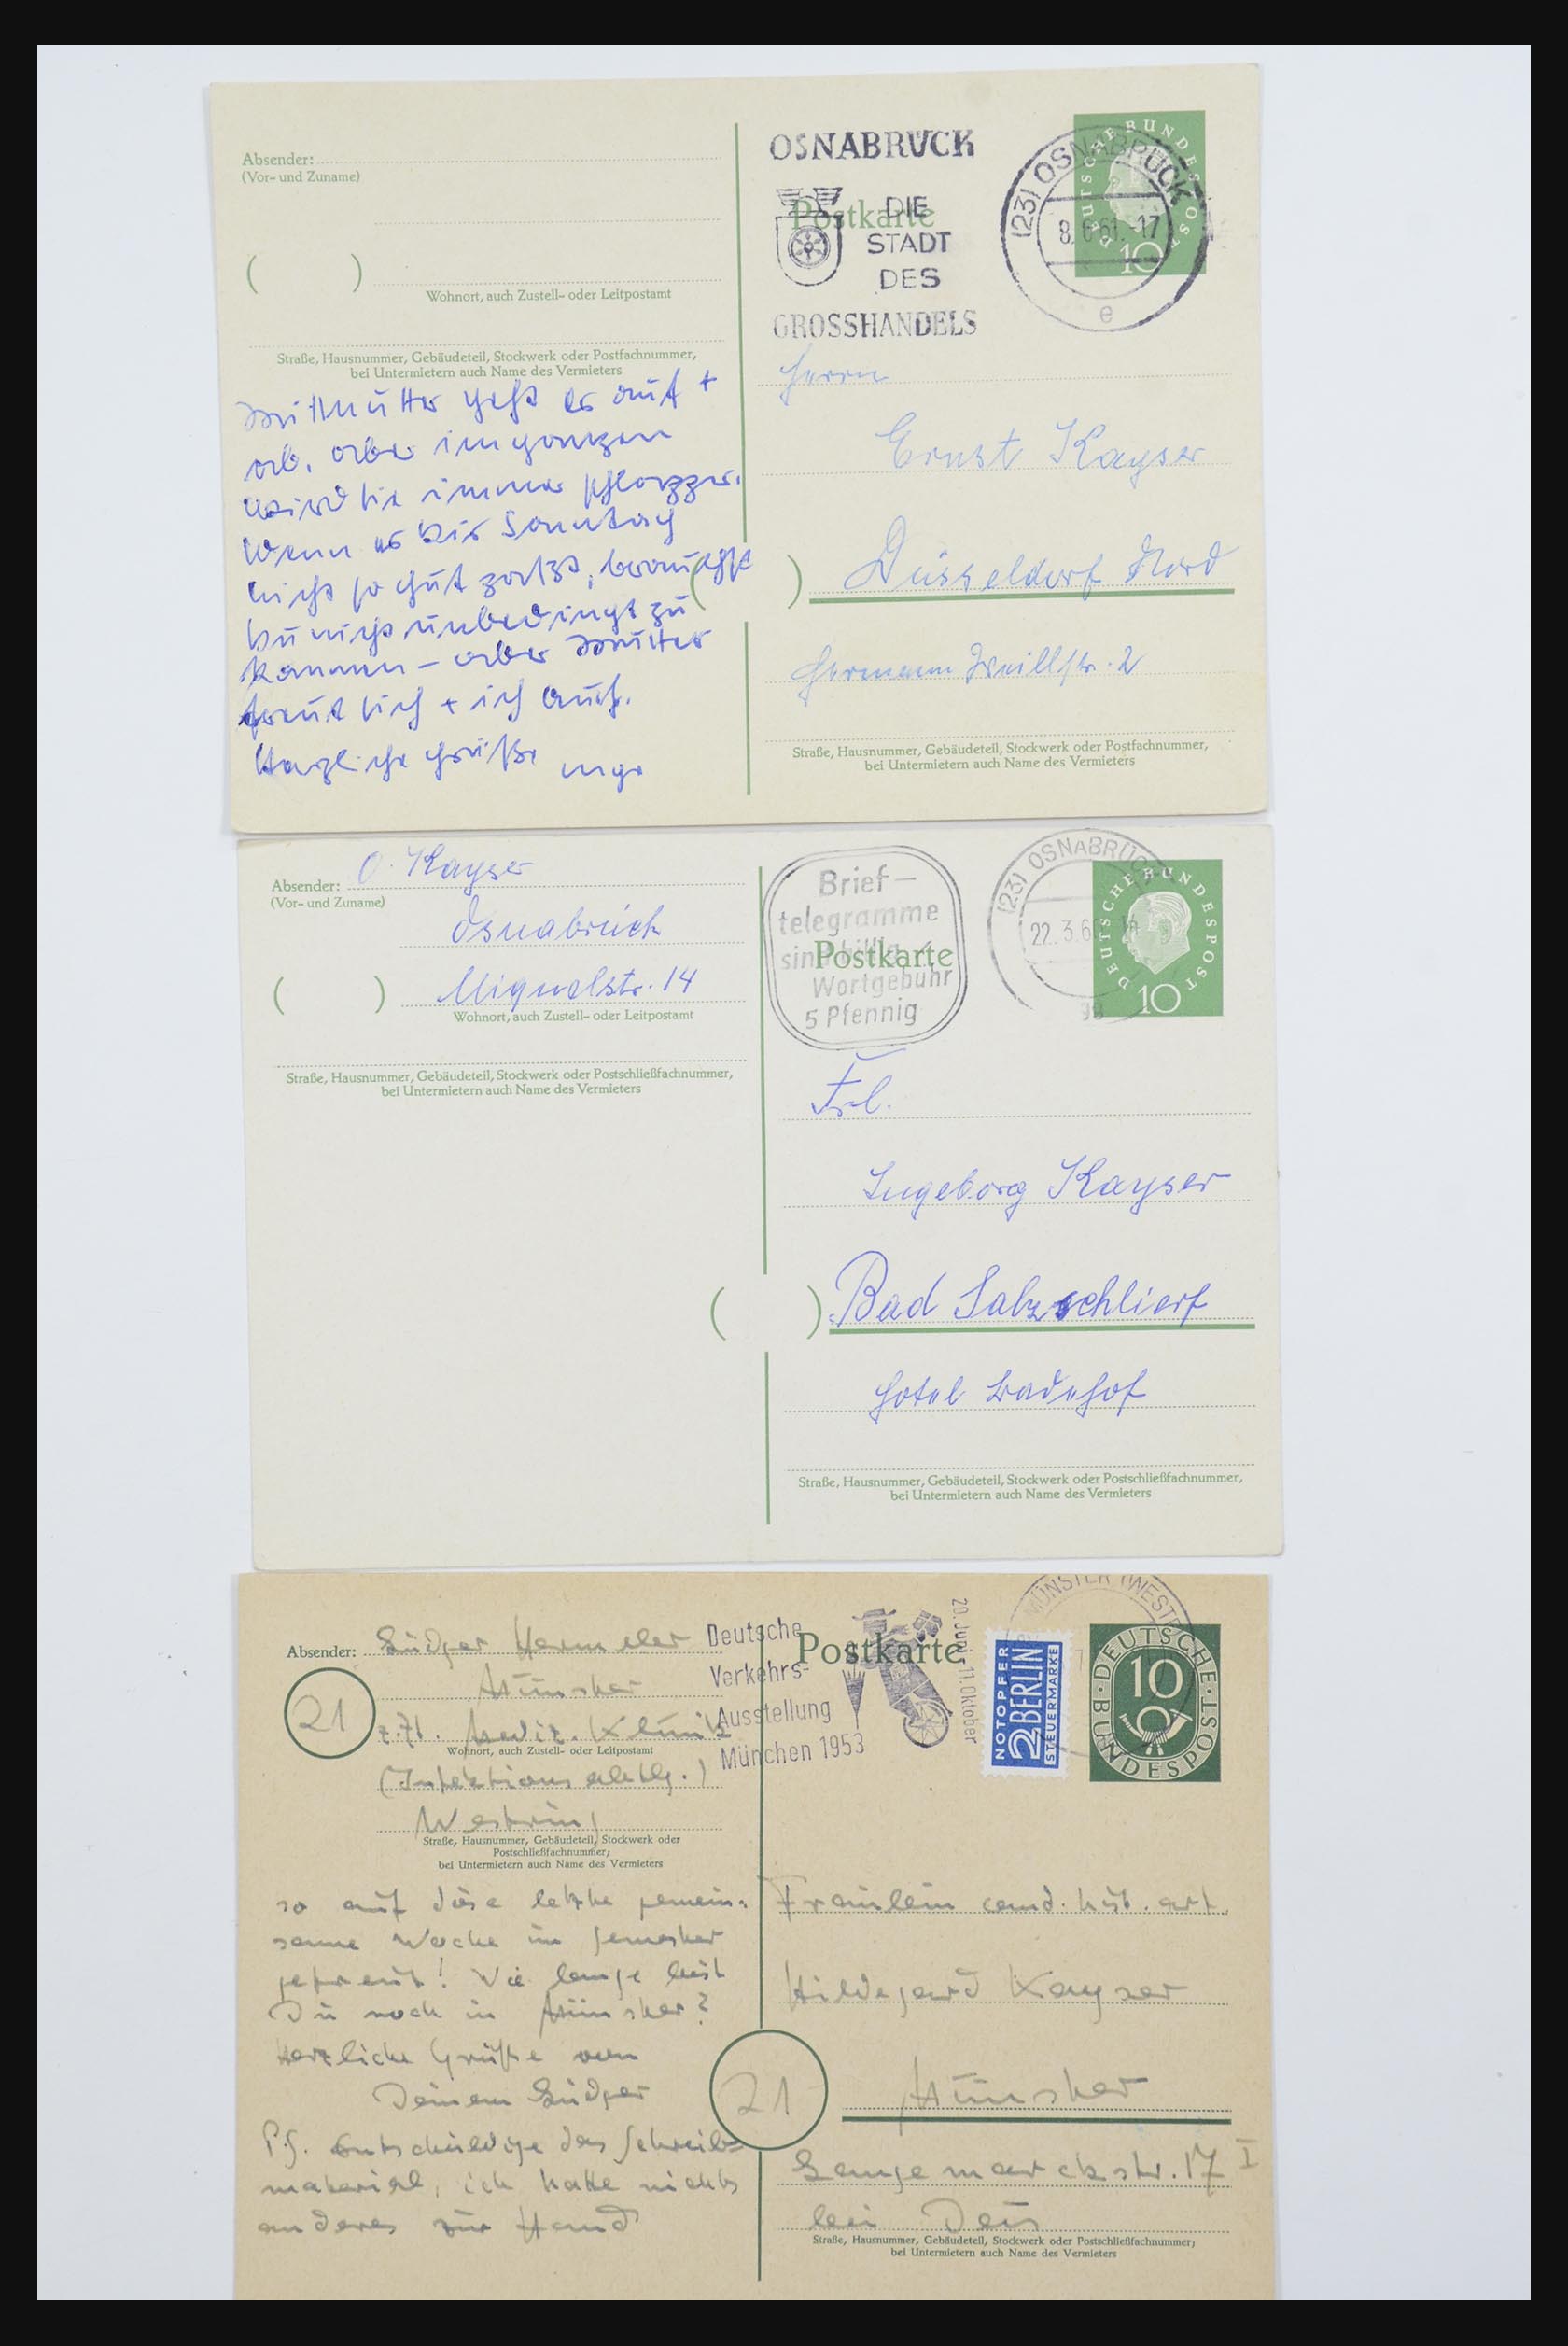 Absender:
(Vor- und Zuname)
( )
Wohnort, auch Zustell- oder Leitpostamt
Straße, Hausnummer, Gebäudeteil, Stockwerk oder Postfachnummer,
bei Untermietern auch Name des Vermieters
Mutter geht es auf +
ab, aber im ganzen
wird sie immer
Wenn es Dir Sonntag
nicht so gut paßt, brauchst
Du nicht unbedingt zu
kommen – aber Mutter
freut sich + ich auch.
Herzliche Grüße Inge
OSNABRÜCK
DIE
STADT
DES
GROSSHANDELS
Postkarte
(23) OSNABRÜCK
8.6.61.-17
e
DEUTSCHE BUNDESPOST
10
Herrn
Ernst Kayser
( ) Düsseldorf Nord
Hermann Weillstr. 2
Straße, Hausnummer, Gebäudeteil, Stockwerk oder Postfachnummer,
bei Untermietern auch Name des Vermieters
Absender: O. Kayser
(Vor- und Zuname)
Osnabrück
( ) Miquelstr. 14
Wohnort, auch Zustell- oder Leitpostamt
Straße, Hausnummer, Gebäudeteil, Stockwerk oder Postschließfachnummer,
bei Untermietern auch Name des Vermieters
Brief-
telegramme
sind billig
Wortgebühr
5 Pfennig
Postkarte
(23) OSNABRÜCK
22.3.6
DEUTSCHE BUNDESPOST
10
Frl.
Ingeborg Kayser
( ) Bad Salzschlierf
Hotel Badehof
Straße, Hausnummer, Gebäudeteil, Stockwerk oder Postschließfachnummer,
bei Untermietern auch Name des Vermieters
Absender: Lüdger
21
Münster
z.Zt. Mediz. Klinik
Wohnort, auch Zustell- oder Leitpostamt
(Infektionsabtlg.)
Westring
Straße, Hausnummer, Gebäudeteil, Stockwerk oder
Postschließfachnummer;
bei Untermietern auch Name des Vermieters
so auf diese letzte gemein-
same Woche im Semester
gefreut! Wie lange bist
Du noch in Münster?
Herzliche Grüße von
Deinem Lüdger
P.S. Entschuldige das Schreib-
material, ich hatte nichts
anderes zur Hand
Deutsche
Verkehrs-
Ausstellung
München 1953
20. Juni - 11. Oktober
Postkarte
MÜNSTER (WESTF
NOTOPFER
2 BERLIN
STEUERMARKE
DEUTSCHE BUNDESPOST
10
Fräulein cand. hist. art.
Hildegard Kayser
21 Münster
Langemarckstr. 17 I
bei Deis
Straße, Hausnummer, Gebäudeteil, Stockwerk oder Postschließfachnummer;
bei Untermietern auch Name des Vermieters